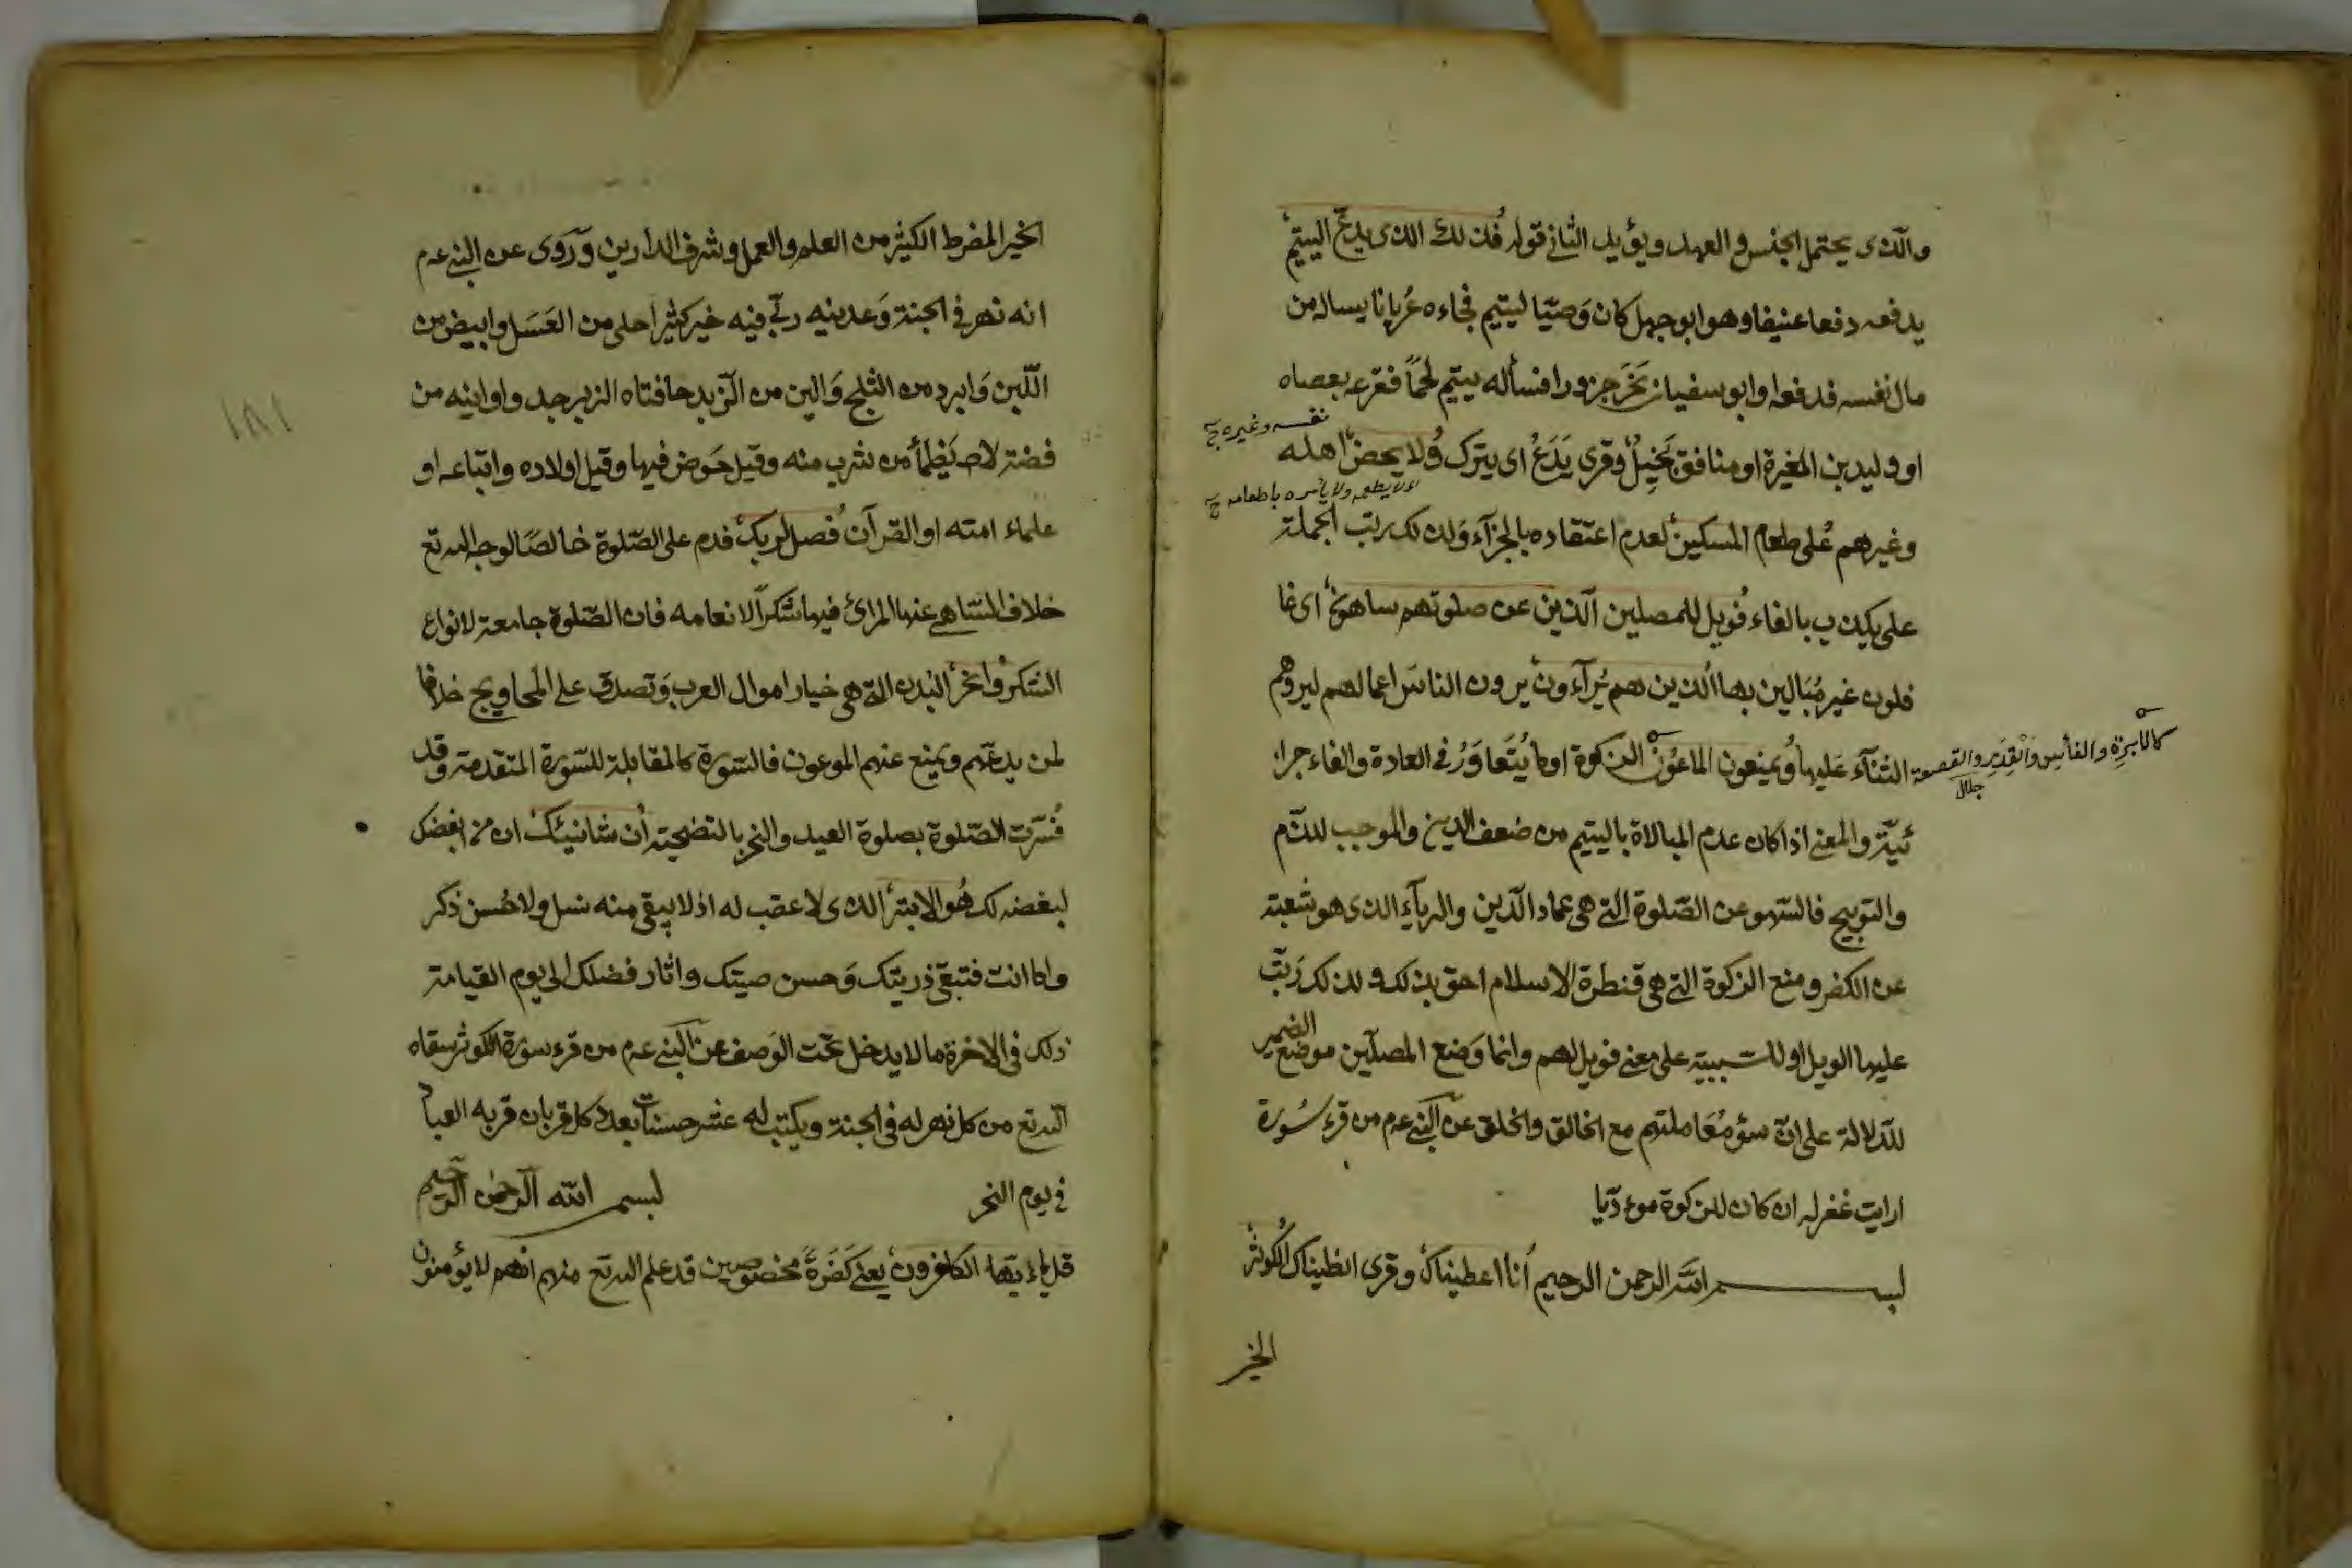 والذى يحتمل الجنس والعهد ويؤيد الثانى قوله فذلك الذى يدع اليتيم
يدفعه دفعا عنيفا وهو ابو جهل كان وَصيّا ليتيم فجاءه عُريانا يساله من
مال نفسه فدفعه او ابو سفيان نَحَرَ جزورا فسأله يتيم لحماً فقرعه بعصاه
او وليد بن المغيرة او منافق بَخِيلٌ وقرى يَدَعُ اى يترك وُلا يحضّ اهله
نفسه وغيره ج
وغيرهم عُلى طعام المسكين لعدم اعتقاده بالجزآء وَلذلك ربّب الجملة
اى لا يطعمه ولا يأمره باطعامه ج
على يكذب بالفاء فُويل للمصلين الّذين عن صلوتهم ساهون اى غا
فلون غير مُبَالين بها الُذين هم يُرآءون يرون الناسَ اعمالهم ليروهم
الثنآء عَليها وُيمنعون الماعُون الزكوة او ما يُتَعاوَرُ فى العادة والفاء جزا
كالابرة والفأس والقِدرِ والقصعة
جلال
ئيّة والمعنى اذا كان عدم المبالاة باليتيم من ضعف الدين والموجب للذّم
والتوبيح فالسّهو عن الصّلوة التى هى عماد الدّين والريآء الذى هو شعبة
عن الكفر ومنع الزكوة التى هى قنطرة الاسلام احق بذلك ولذلك رَتّب
عليها الويل او للسّببية على معنى فويل لهم وانما وَضع المصلّين موضع الضمير
للّدلالة على انّ سؤ مُعَاملتهم مع الخالق والخلق عن النبى عم من قرء سُورة
ارايت غفر له ان كان للزكوة موءدّيا
بسم الله الرحمن الرحيم اُنا اعطيناك وقرى انطيناك الُكوثر
الخير
الخير المفرط الكثير من العلم والعمل وشرف الدارين وَرَوى عن النبى عم
انه نهر فى الجنة وَعدنيه ربّى فيه خير كثير احلى من العَسَل وابيض من
اللّبن وَابرد من الثلج وَالين من الزّبد حافتاه الزبرجد واوانيه من
فضة لا يَظمأ من شرب منه وقيل حَوض فيها وقيل اولاده واتباعه او
علماء امته او القرآن فُصل لربك فدم على الصّلوة خالصًا لوجه الله تع
خلاف السّاهى عنها المرائ فيها شكراً لانعامه فان الصّلوة جامعة لانواع
الشكر وُانحر البدن التى هى خيار اموال العرب وَتصدق على المحاويج خلافا
لمن يدعّهم ويمنع عنهم الموعون فالسّورة كالمقابلة للسّورة المتقدمة وقد
فُسّرت الصّلوة بصلوة العيد والنحر بالتضحية اُن شانئك ان من ابغضك
لبغضه لك هُو الابتر الذى لا عقب له اذ لا يبقى منه نسل ولا حُسن ذكر
واما انت فتبقى ذريتك وَحسن صيتك واثار فضلك الى يوم القيامة
ذلك فى الاخرة ما لا يدخل تحت الوَصف عن النبى عم من قرء سورة الكوثر سقاه
الله تع من كل نهر له فى الجنة ويكتب له عشر حسنات بعدد كل قربان قربه العباد
فى يوم النحر بسم الله الرّحمن الرّحيم
قل ياءيّها الكافرون يعنى كَفَرَةً مخصوصين قد علم الله تع منهم انهم لا يؤمنون
١٨١